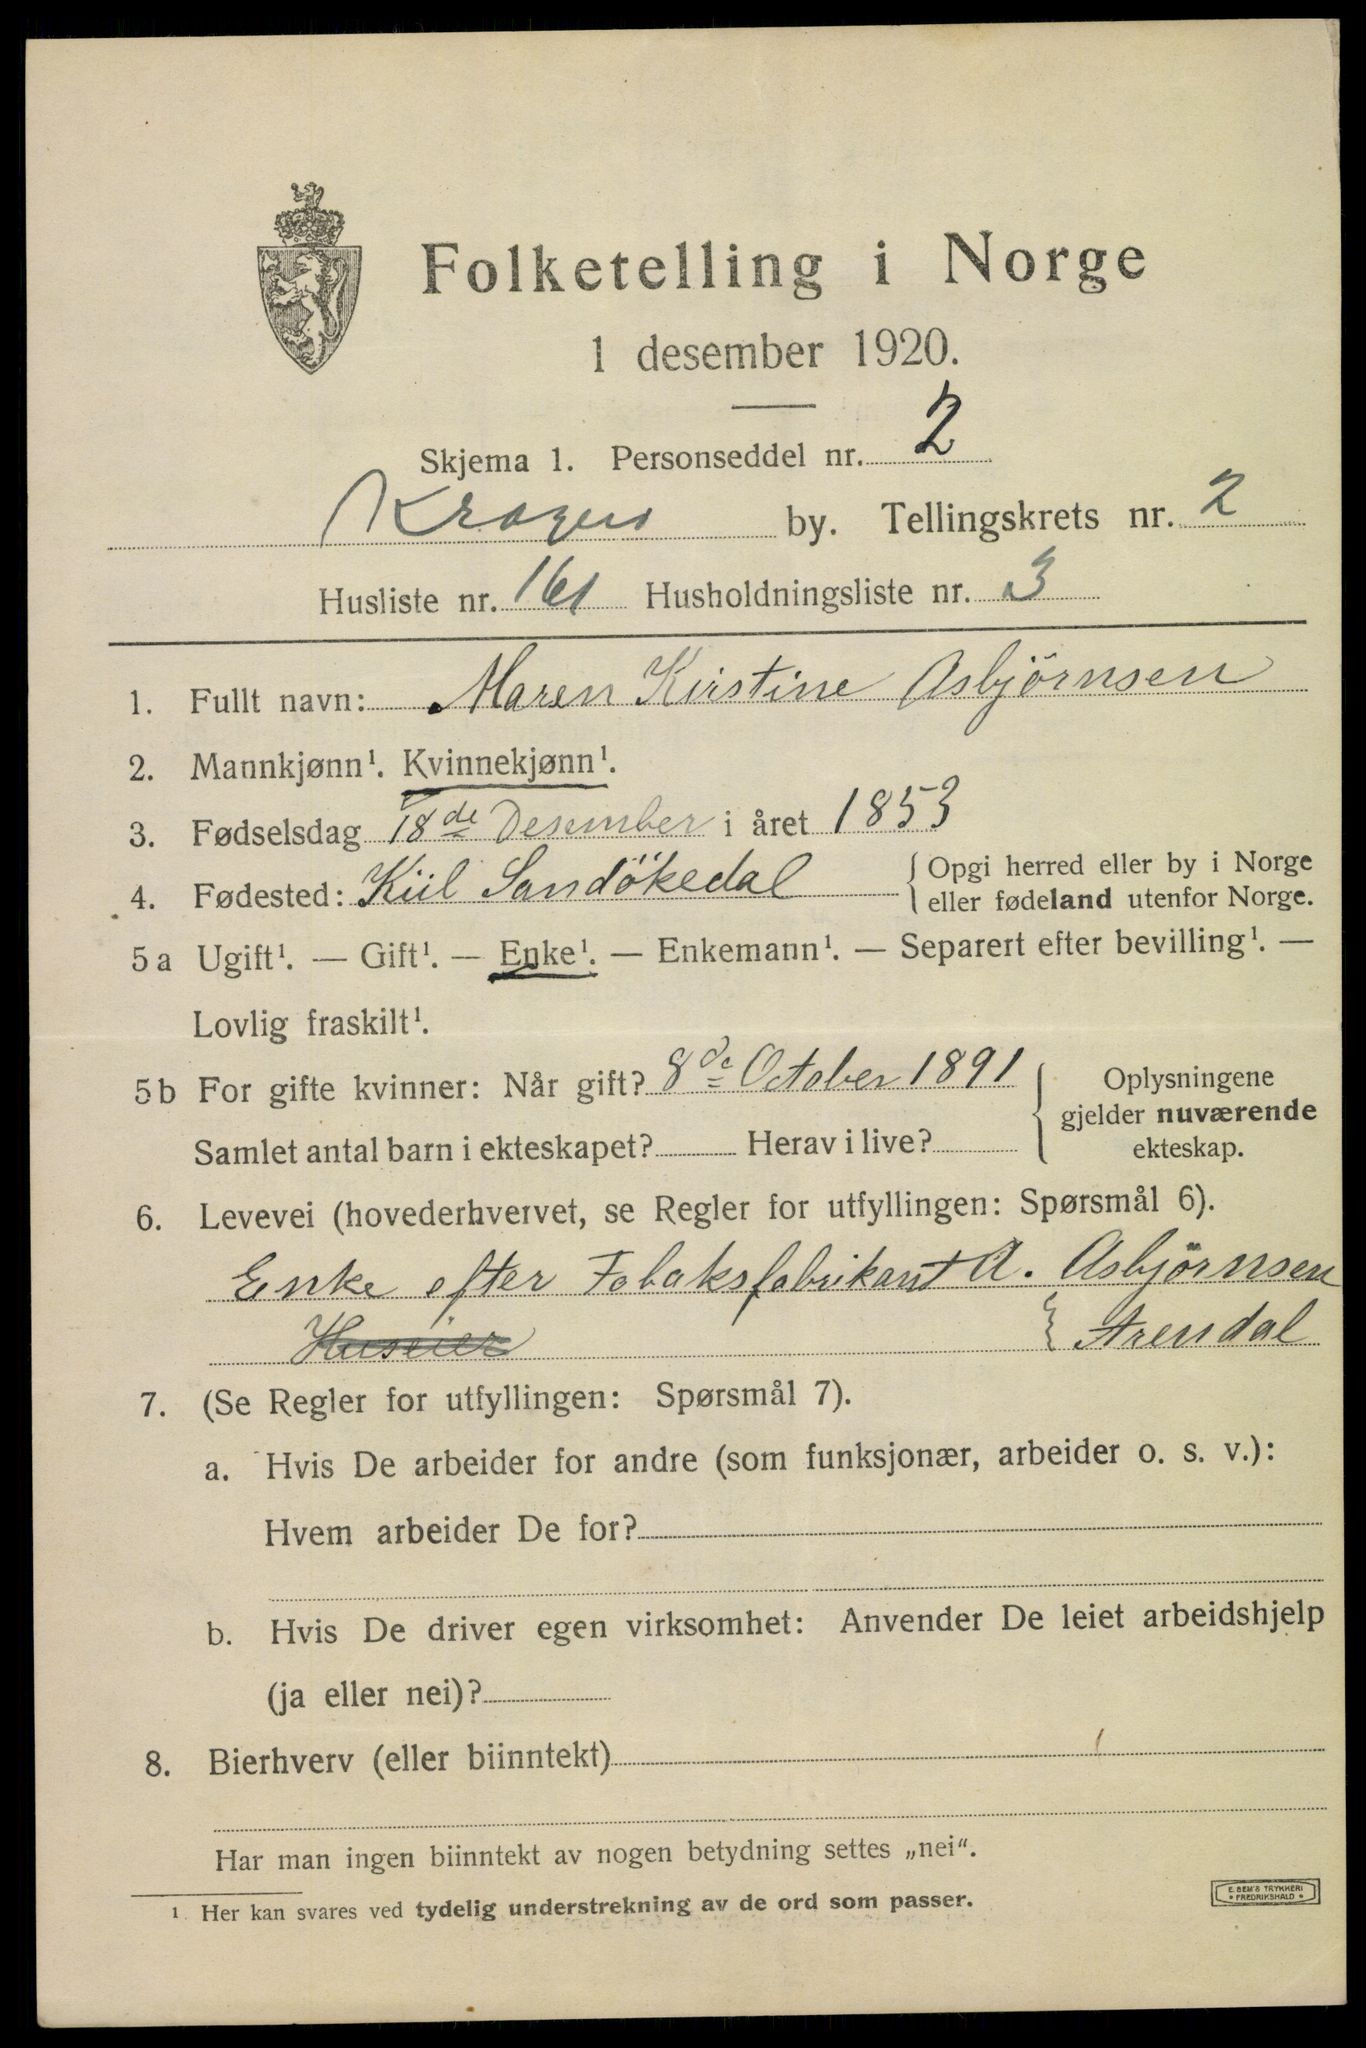 Folketelling i Norge
1 desember 1920.
Skjema 1. Personseddel nr. 2
Kragerø by. Tellingskrets nr. 2
Husliste nr. 161 Husholdningsliste nr. 3
1. Fullt navn: Maren Kirstine Asbjörnsen
2. Mannkjønn¹. Kvinnekjønn¹.
3. Fødselsdag 18de Desember i året 1853
4. Fødested: Kiil Sandökedal { Opgi herred eller by i Norge
eller fødeland utenfor Norge.
5a Ugift¹. — Gift¹. — Enke¹. — Enkemann¹. — Separert efter bevilling¹. —
Lovlig fraskilt¹.
5b For gifte kvinner: Når gift? 8de October 1891 { Oplysningene
gjelder nuværende
ekteskap.
Samlet antal barn i ekteskapet? Herav i live?
6. Levevei (hovederhvervet, se Regler for utfyllingen: Spørsmål 6).
Enke efter Tobaksfabrikant A. Asbjörnsen
Huseier } Arendal
7. (Se Regler for utfyllingen: Spørsmål 7).
a. Hvis De arbeider for andre (som funksjonær, arbeider o. s. v.):
Hvem arbeider De for?
b. Hvis De driver egen virksomhet: Anvender De leiet arbeidshjelp
(ja eller nei)?
8. Bierhverv (eller biinntekt)
Har man ingen biinntekt av nogen betydning settes „nei“.
¹ Her kan svares ved tydelig understrekning av de ord som passer.
E. SEM'S TRYKKERI
• FREDRIKSHALD •